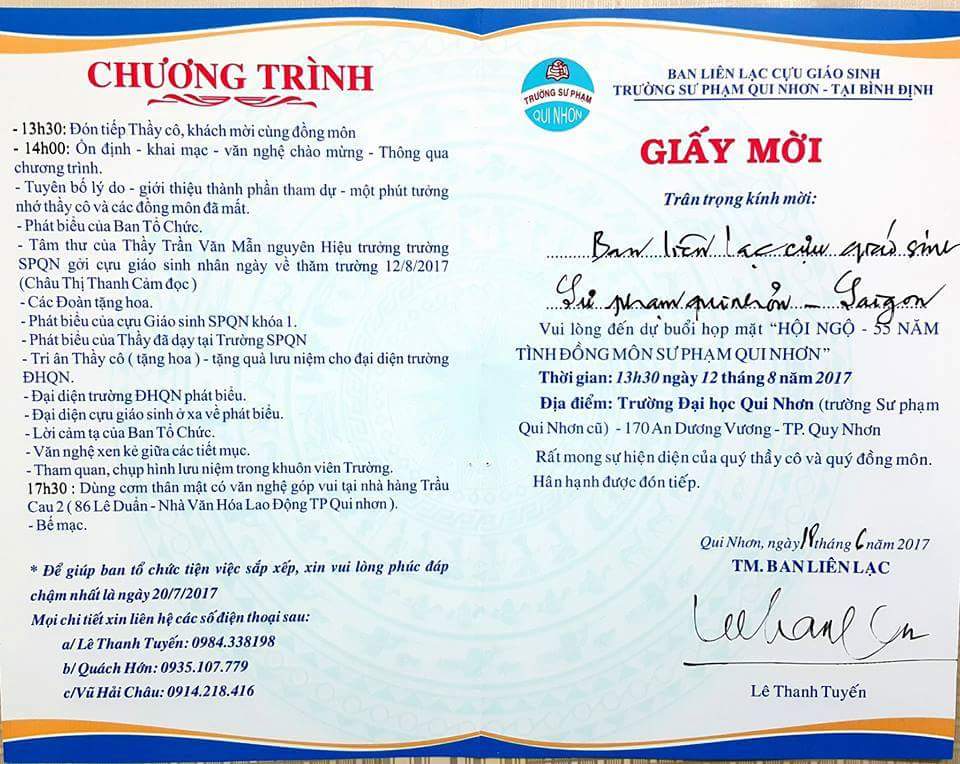 CHƯƠNG TRÌNH
- 13h30: Đón tiếp Thầy cô, khách mời cùng đồng môn
- 14h00: Ổn định - khai mạc - văn nghệ chào mừng - Thông qua
chương trình.
- Tuyên bố lý do - giới thiệu thành phần tham dự - một phút tưởng
nhớ thầy cô và các đồng môn đã mất.
- Phát biểu của Ban Tổ Chức.
- Tâm thư của Thầy Trần Văn Mẫn nguyên Hiệu trưởng trường
SPQN gởi cựu giáo sinh nhân ngày về thăm trường 12/8/2017
(Châu Thị Thanh Cảm đọc )
- Các Đoàn tặng hoa.
- Phát biểu của cựu Giáo sinh SPQN khóa 1.
- Phát biểu của Thầy đã dạy tại Trường SPQN
- Tri ân Thầy cô ( tặng hoa ) - tặng quà lưu niệm cho đại diện trường
ĐHQN.
- Đại diện trường ĐHQN phát biểu.
- Đại diện cựu giáo sinh ở xa về phát biểu.
- Lời cảm tạ của Ban Tổ Chức.
- Văn nghệ xen kẻ giữa các tiết mục.
- Tham quan, chụp hình lưu niệm trong khuôn viên Trường.
17h30 : Dùng cơm thân mật có văn nghệ góp vui tại nhà hàng Trầu
Cau 2 ( 86 Lê Duẩn - Nhà Văn Hóa Lao Động TP Qui nhơn ).
- Bế mạc.
* Để giúp ban tổ chức tiện việc sắp xếp, xin vui lòng phúc đáp
chậm nhất là ngày 20/7/2017
Mọi chi tiết xin liên hệ các số điện thoại sau:
a/ Lê Thanh Tuyến: 0984.338198
b/ Quách Hớn: 0935.107.779
c/Vũ Hải Châu: 0914.218.416
TRƯỜNG SƯ PHẠM
QUI NHƠN
BAN LIÊN LẠC CỰU GIÁO SINH
TRƯỜNG SƯ PHẠM QUI NHƠN - TẠI BÌNH ĐỊNH
GIẤY MỜI
Trân trọng kính mời:
Ban liên lạc cựu giáo sinh
Sư phạm qui nhơn - Saigon
Vui lòng đến dự buổi họp mặt “HỘI NGỘ - 55 NĂM
TÌNH ĐỒNG MÔN SƯ PHẠM QUI NHƠN”
Thời gian: 13h30 ngày 12 tháng 8 năm 2017
Địa điểm: Trường Đại học Qui Nhơn (trường Sư phạm
Qui Nhơn cũ) - 170 An Dương Vương - TP. Quy Nhơn
Rất mong sự hiện diện của quý thầy cô và quý đồng môn.
Hân hạnh được đón tiếp.
Qui Nhơn, ngày 18 tháng 6 năm 2017
TM. BAN LIÊN LẠC
Lê Thanh Tuyến